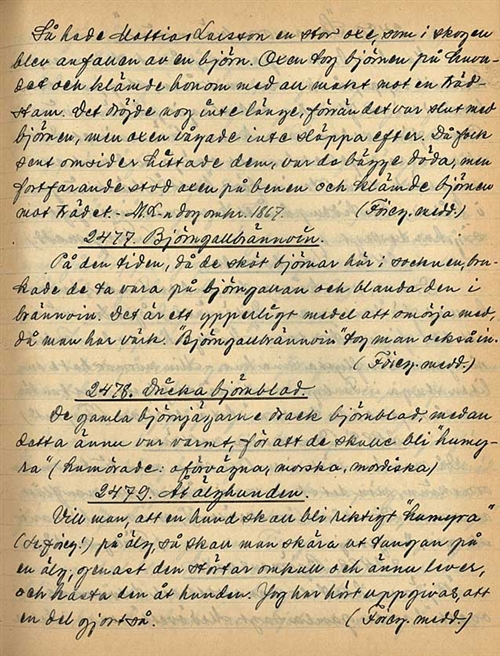 Så hade Mattias Larsson en stor oxe, som i skogen
blev anfallen av en björn. Oxen tog björnen på huvu-
det och klämde honom med all makt mot en träd-
stam. Det dröjde nog inte länge, förrän det var slut med
björnen, men oxen vågade inte släppa efter. Då folk
sent omsider hittade dem, var de bägge döda, men
fortfarande stod oxen på benen och klämde björnen
mot trädet. - M.L-n dog omkr. 1867. (Föreg. medd.)
2477. Björngallbrännvin.
På den tiden, då de sköt björnar här i socknen, bru-
kade de ta vara på björngallan och blanda den i
brännvin. Det är ett ypperligt medel att smörja med,
då man har värk. "Björngallbrännvin" tog man också in.
(Föreg. medd.)
2478. Dricka björnblod.
De gamla björnjägarne drack björnblod, medan
detta ännu var varmt, för att de skulle bli "humeg-
ra" (humörade: oförvägna, morska, mordiska)
2479. Åt älghunden.
Vill man, att en hund skall bli riktigt "humegra"
(se föreg.!) på älg, så skall man skära at tungan på
en älg, genast den störtar omkull och ännu lever,
och kasta den åt hunden. Jag har hört uppgivas, att
en del gjort så. (Föreg. medd.)